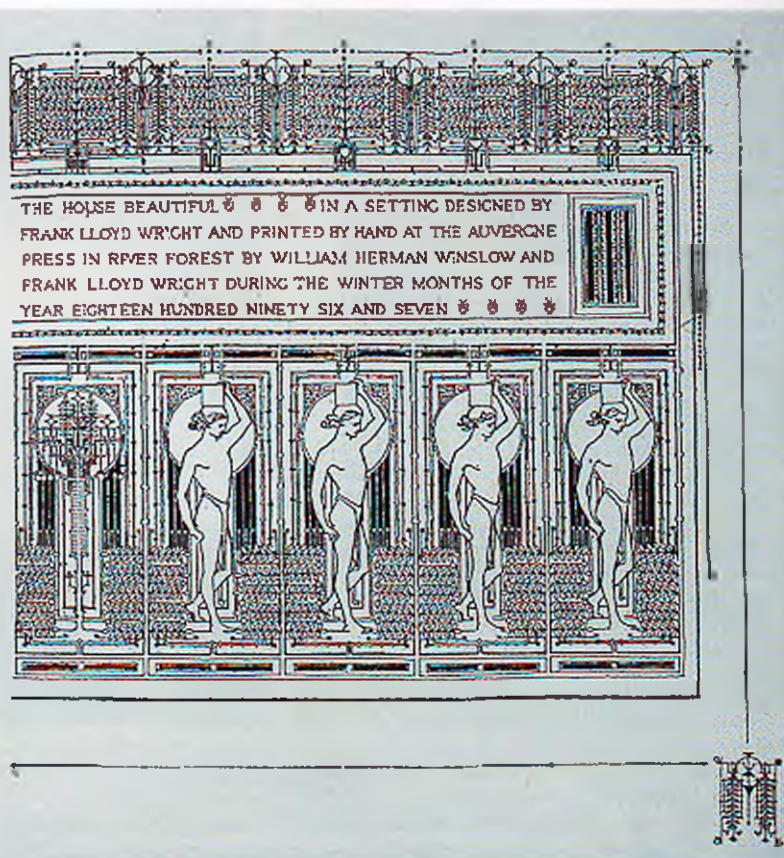 THE HOUSE BEAUTIFUL IN A SETTING DESIGNED BY
FRANK LLOYD WRIGHT AND PRINTED BY HAND AT THE AUVERGNE
PRESS IN RIVER FOREST BY WILLIAM HERMAN WINSLOW AND
FRANK LLOYD WRIGHT DURING THE WINTER MONTHS OF THE
YEAR EIGHTEEN HUNDRED NINETY SIX AND SEVEN